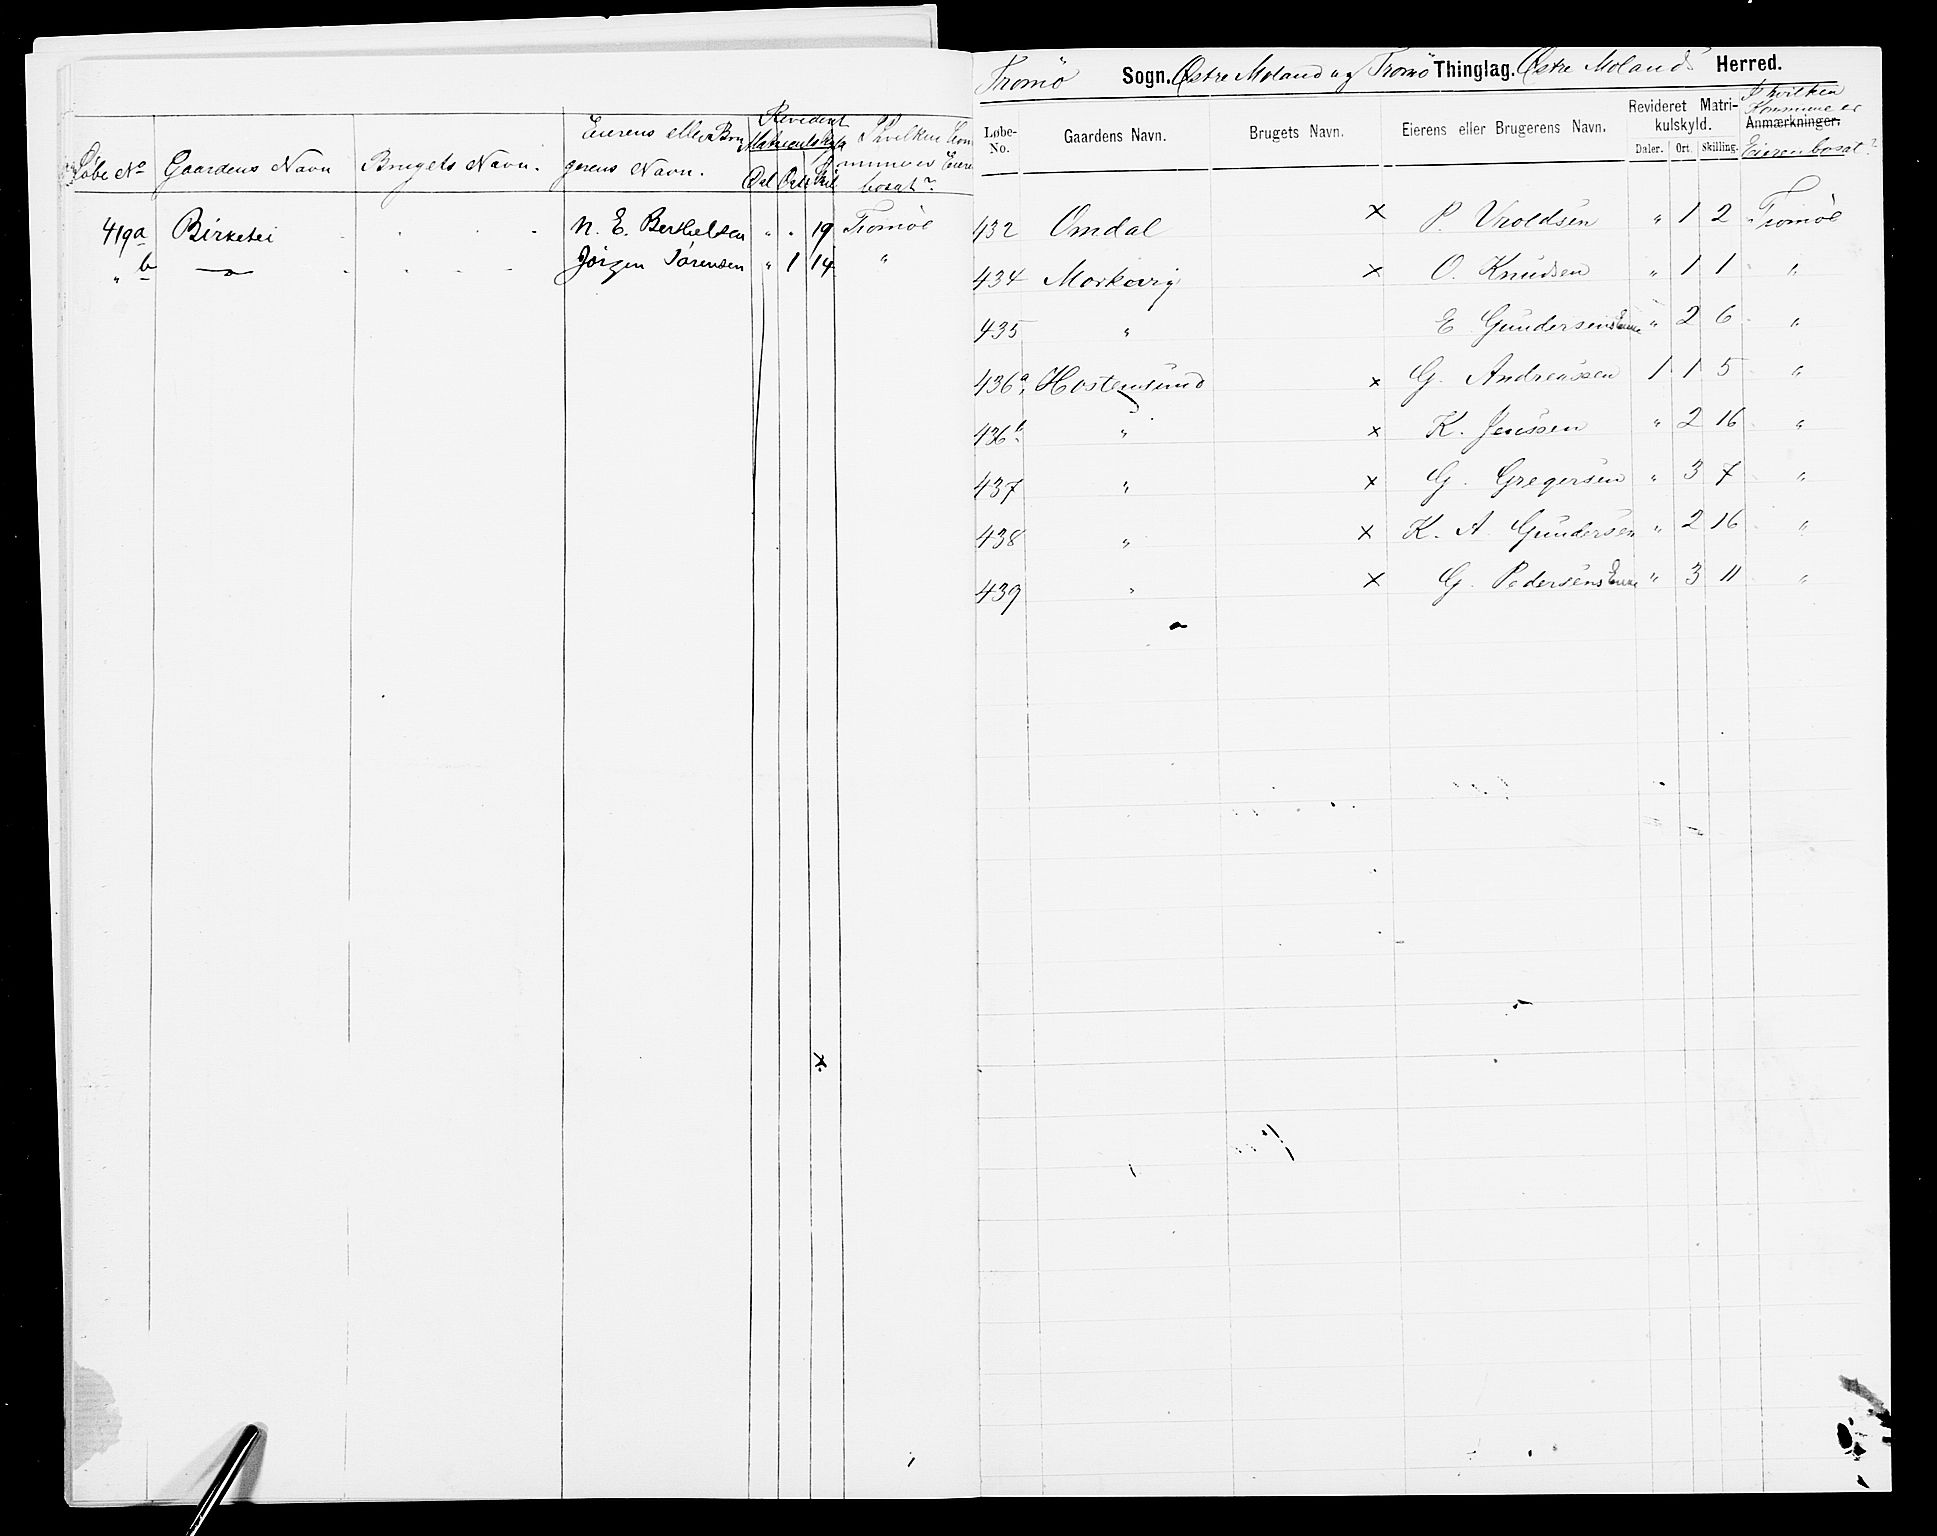 Løbe No Gaardens Navn Brugets Navn. Eierens eller Bru
gerens Navn. Revideret
Matriculskyld
Dal Ort Skil I hvilken Kom
mune er Eieren
bosat?
419a Birketei N. E. Berthelsen " . 19 Tromöe
" b — Jörgen Sörensen " 1 14 "
Tromö Sogn. Østre Moland og Tromö Thinglag. Østre Molands Herred.
Løbe-
No. Gaardens Navn. Brugets Navn. Eierens eller Brugerens Navn. Revideret Matri-
kulskyld.
Daler. Ort. Skilling. I hvilken
Kommune er
Anmærkninger.
Eieren bosat?
432 Omdal × P. Vroldsen " 1 2 Tromöe
434 Morkevig × O. Knudsen " 1 1 "
435 " E Gundersens Enke " 2 6 "
436a. Hostensund × G. Andreassen 1 1 5 "
436b. " × K. Jenssen " 2 16 "
437 " × G. Gregersen " 3 7 "
438 " × K. A. Gundersen " 2 16 "
439 " × G. Pedersens Enke " 3 11 "
×